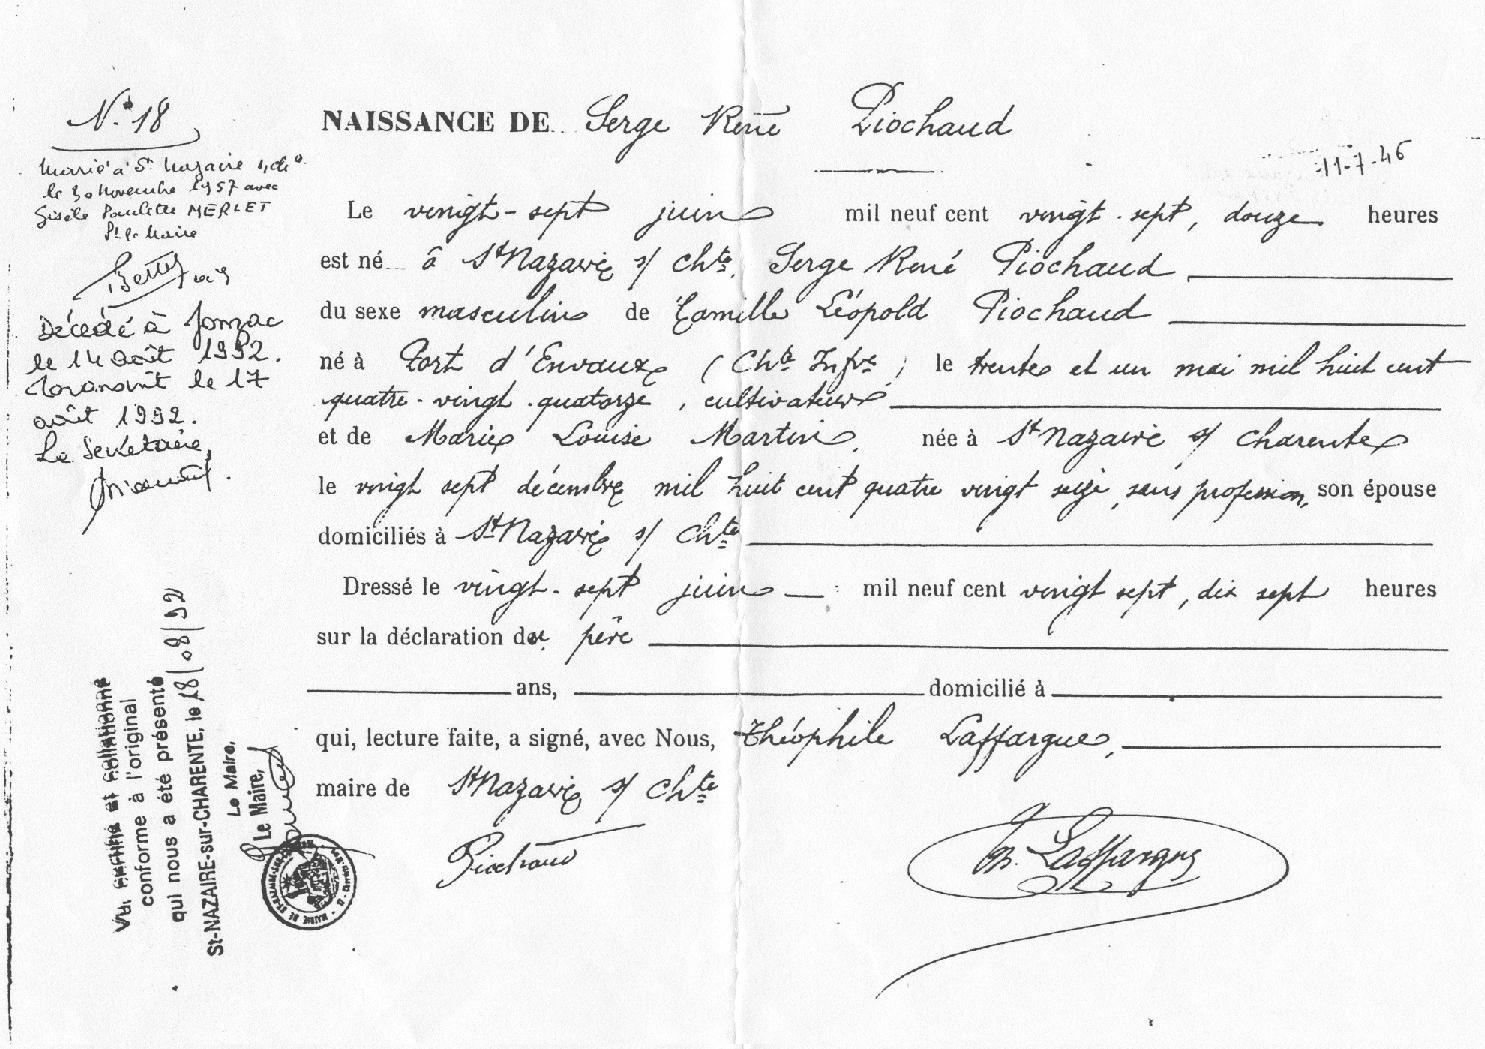 N° 18
Marié à St Nazaire s/ch.te
le 30 Novembre 1957 avec
Gisèle Paulette MERLET
Le Maire
Décédé à Jonzac
le 14 août 1992.
Transcrit le 17
août 1992.
Le Secrétaire,
NAISSANCE DE Serge René Piochaud
11-7-46
Le vingt-sept juin mil neuf cent vingt-sept, douze heures
est né à St Nazaire s/ Chte, Serge René Piochaud
du sexe masculin de Camille Léopold Piochaud
né à Port d'Envaux (Chte Infre) le trente et un mai mil huit cent
quatre-vingt-quatorze, cultivateur
et de Marie Louise Martin, née à St Nazaire s/ Charente
le vingt sept décembre mil huit cent quatre vingt seize, sans profession, son épouse
domiciliés à St Nazaire s/ Chte
Dressé le vingt-sept juin mil neuf cent vingt sept, dix sept heures
sur la déclaration du père
ans, domicilié à
qui, lecture faite, a signé, avec Nous, Théophile Laffargue,
maire de St Nazaire s/ Chte
Piochaud
Th. Laffargue
Vu, vérifié et collationné
conforme à l'original
qui nous a été présenté
St-NAZAIRE-sur-CHARENTE, le 18/08/92
Le Maire,
Le Maire,